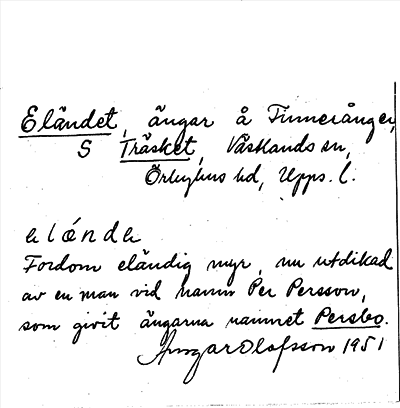 Eländet, ängar å Finnerånger,
S Träsket, Västlands sn,
Örbyhus hd, Upps. l.
elǻndɛ
Fordom eländig myr, nu utdikad
av en man vid namn Per Persson,
som givit ängarna namnet Persbo.
Ansgar Olofsson 1951